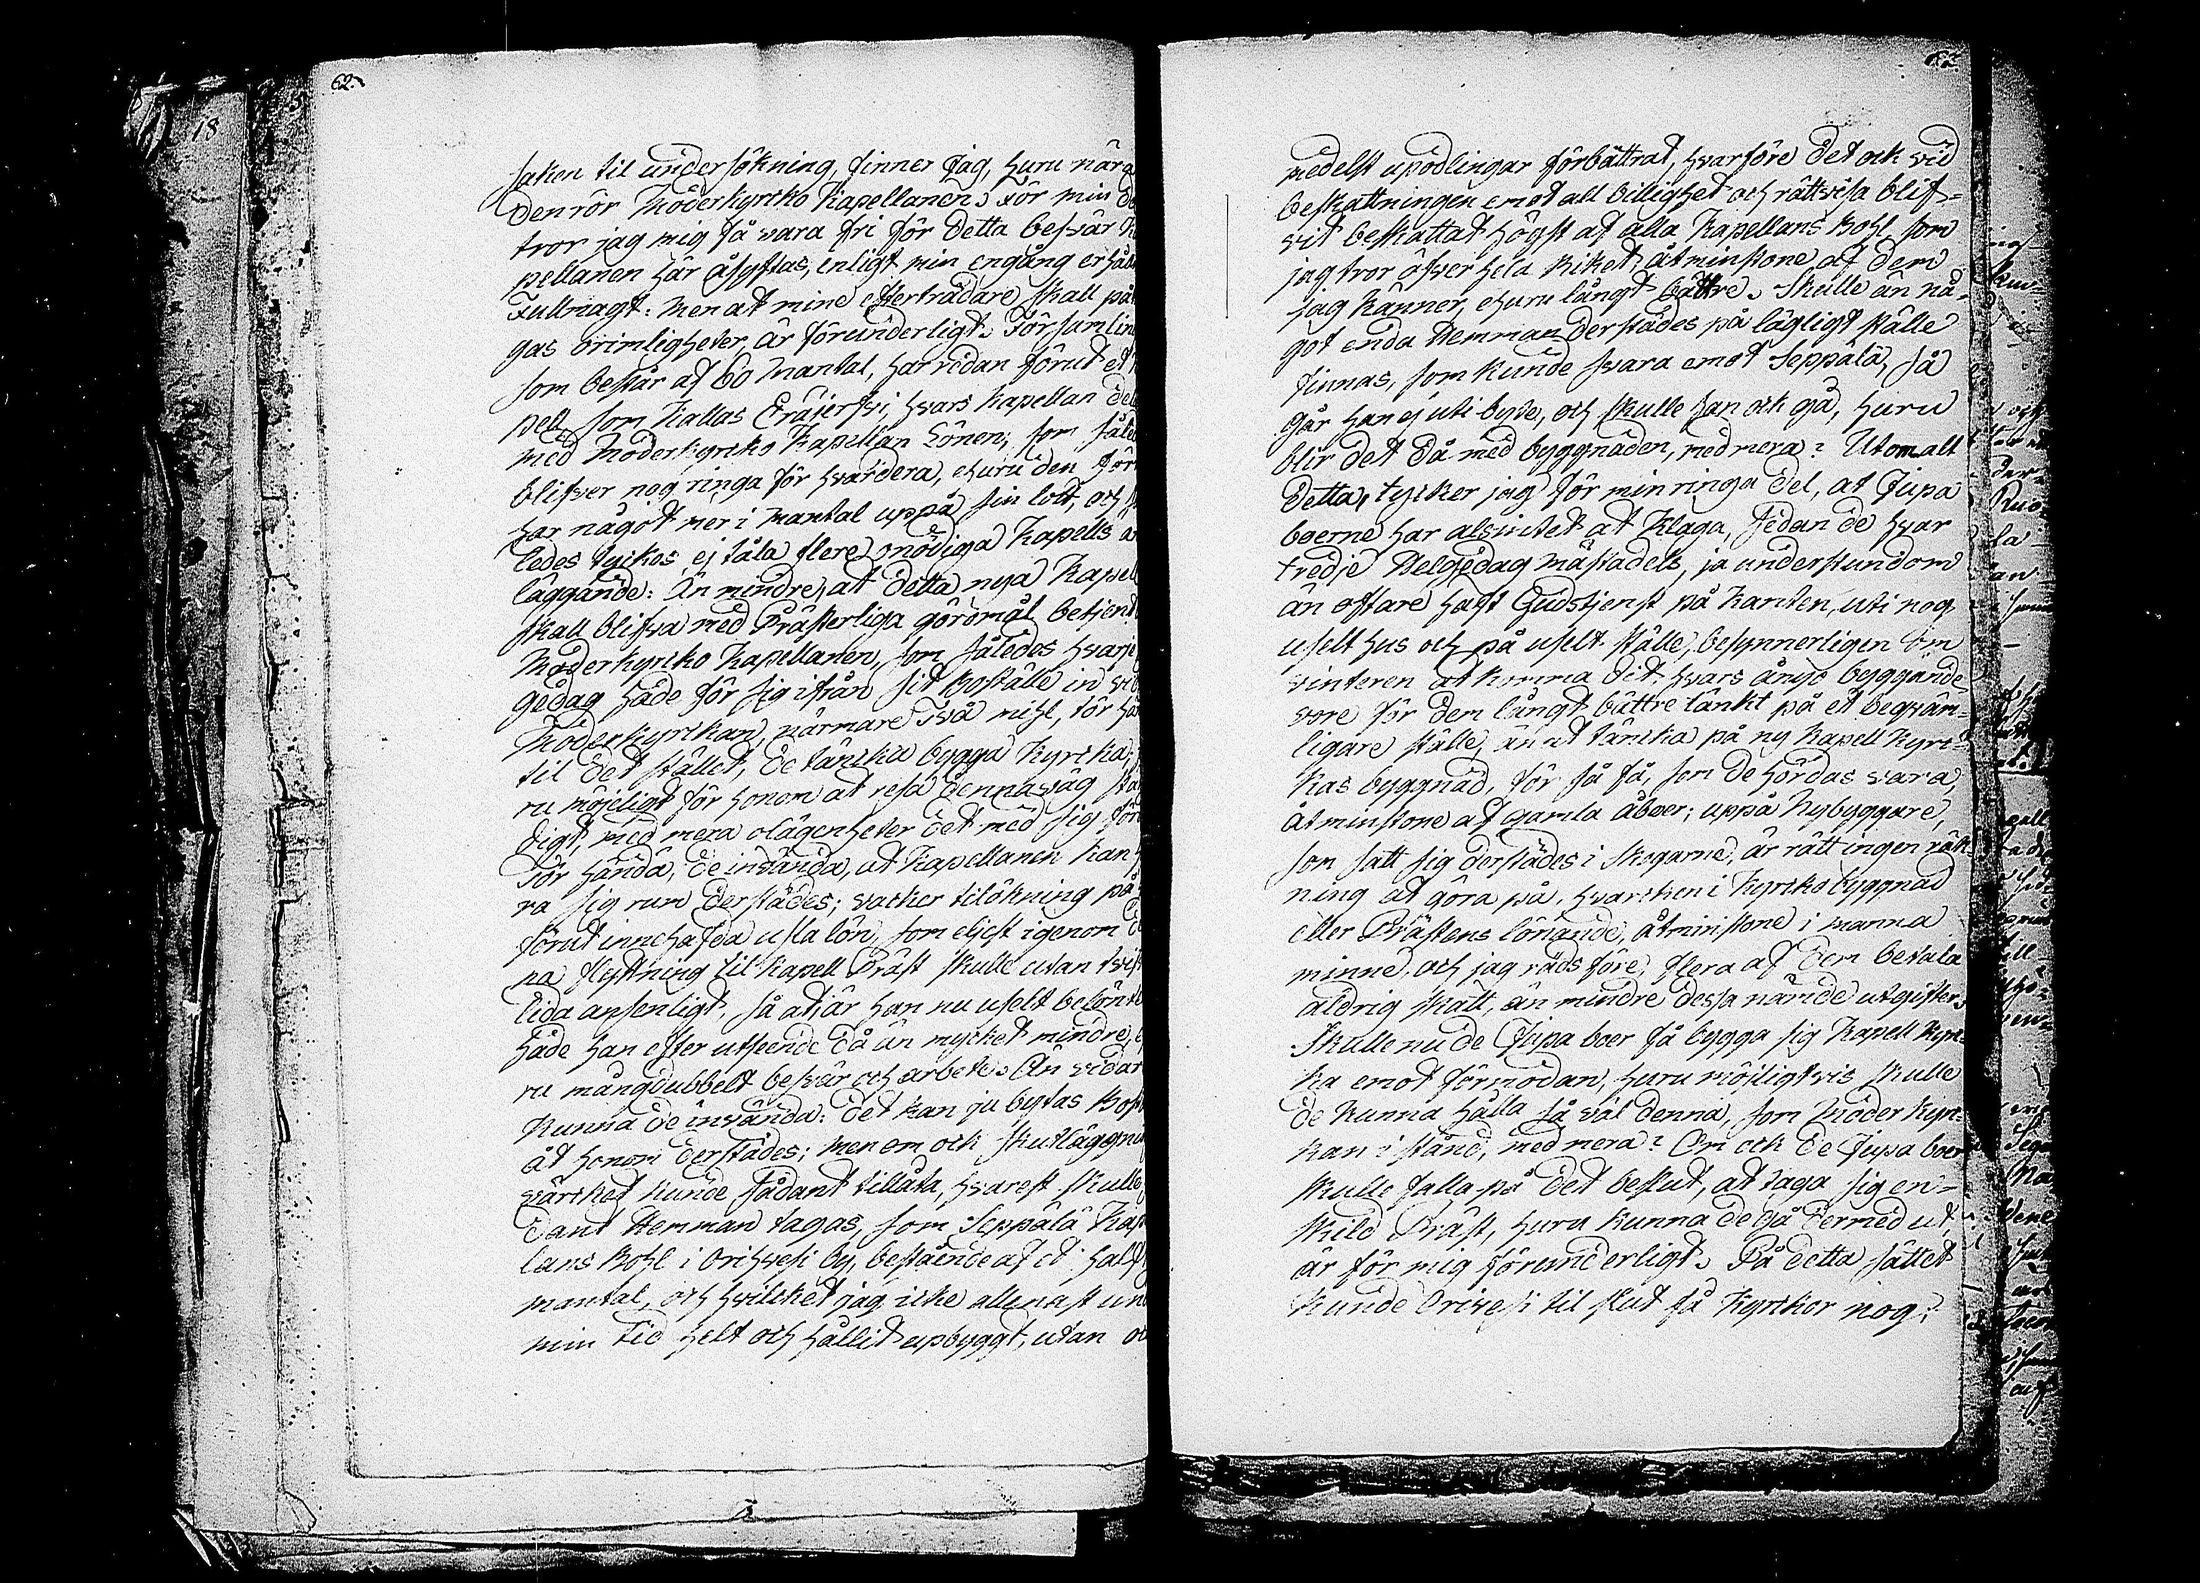 62.
18
saken til undersökning, finner Jag, huru nära
den rör Moderkyrko Kapellanen. För min de
tror jag mig få vara fri för detta besvär K
pellanen här åsyftas, enligt min engång erhåln
Fullmagt: men at mine efterträdare skall på
gas orimligheter, är förunderligt. Församlin
som består af 60 Mantal, har redan förut et
pell som kallas Eräjerfvi, hvars Kapellan del
med Moderkyrko Kapellan Lönen, som såled
blifver nog ringa för hvardera, ehuru den för
har något mer i Mantal uppå sin lott, och
ledes tyckes ej tåla flere onödiga Kapells
läggande: än mindre, at detta nya Kapell
skall blifva med Prästerliga göromål betjent
Moderkyrko Kapellanen, som således hvarje
gedag både för sig ifrån sit Boställe in vid
Moderkyrkan, närmare Två mihl, tör hän
til det stället, de tänka bygga Kyrka;
ru möjeligt för honom at resa denna väg sta
digt, med mera olägenheter det med sig för
Tör hända, de invända, at Kapellanen kan
ra sig rum derstädes; vacker tilökning på
förut innehafda usla lön, som eljest igenom
na flyttning til Kapell Präst skulle utan tvif
lida ansenligt, så at, är han nu uselt belönt
både han efter utseende då än mycket mindre,
ru mångdubbelt besvär och arbete. Än vidar
kunna de invända: det kan ju bytas Bost
åt honom derstädes; men om ock Skattläggnin
värcket kunde sådant tillåta, hvarest skulle
dant Hemman tagas, som Seppälä Kap
lans Bohl i Orihvesi by, bestående af et halft
mantal, och hvilcket jag icke allenast und
min tid helt och hållit upbyggt, utan oc
medelst upodlingar förbättrat, hvarföre det ock vid
beskattningen emot all billighet och rättvisa blif-
vit beskattat högst af alla Kapellans Bohl, som
jag tror öfver hela Riket, åtminstone af dem
jag känner, ehuru långt bättre. Skulle än nå-
got enda Hemman derstädes på lägligt ställe
finnas, som kunde svara emot Seppälä, så
går han ej uti byte, och skulle han ock gå, huru
blir det då med byggnaden, med mera? Utom alt
detta, tycker jag för min ringa del, at Jupa
boerne har alsintet at klaga, sedan de hvar
tredje Helgedag mästadels, ja understundom
än oftare haft Gudstjenst på Kanten, uti nog
uselt hus och på uselt ställe, besynnerligen om
vinteren at komma dit, hvars ånyo byggande
vore för dem långt bättre tänkt på et beqväm-
ligare ställe, än at tänka på ny Kapell Kyrc-
kas byggnad, för så få, som de hördas vara,
åtminstone af gamla åboer; uppå Nybyggare,
som satt sig derstädes i Skogarne, är rätt ingen räk-
ning at göra på, hvarcken i Kyrko byggnad
eller Prästens lönande, åtminstone i manna
minne, och jag räds före, flera af dem betala
aldrig skatt, än mindre dessa nämde utgifter.
Skulle nu de Jupa boer få bygga sig Kapell Kyr-
ka emot förmodan, huru möjligtvis skulle
de kunna hålla så väl denna, som Moder Kyr-
kan i stånd, med mera? Om ock de Jupa boer
skulle falla på det beslut, at taga sig en-
skild Präst, huru kunna de gå dermed ut,
är för mig förunderligt. På detta sättet
kunde Orivesi til slut få Kyrkor nog: